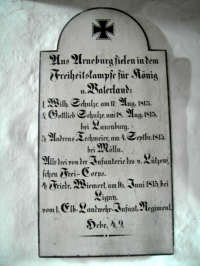 Aus Arneburg fielen in dem
Freiheitskampfe für König
u. Vaterland:
1. Wilh. Schulze, am 17. Aug. 1813.
2. Gottlieb Schulze, am 18. Aug. 1813.
bei Lauenburg.
3. Andreas Techmeier, am 4. Septbr. 1813.
bei Mölln.
Alle drei von der Infanterie des v. Lützow
schen Frei-Corps.
4. Friedr. Wienert, am 16. Juni 1815 bei
Ligny.
vom 1. Elb Landwehr-Infant. Regiment.
Hebr. 4, 9.